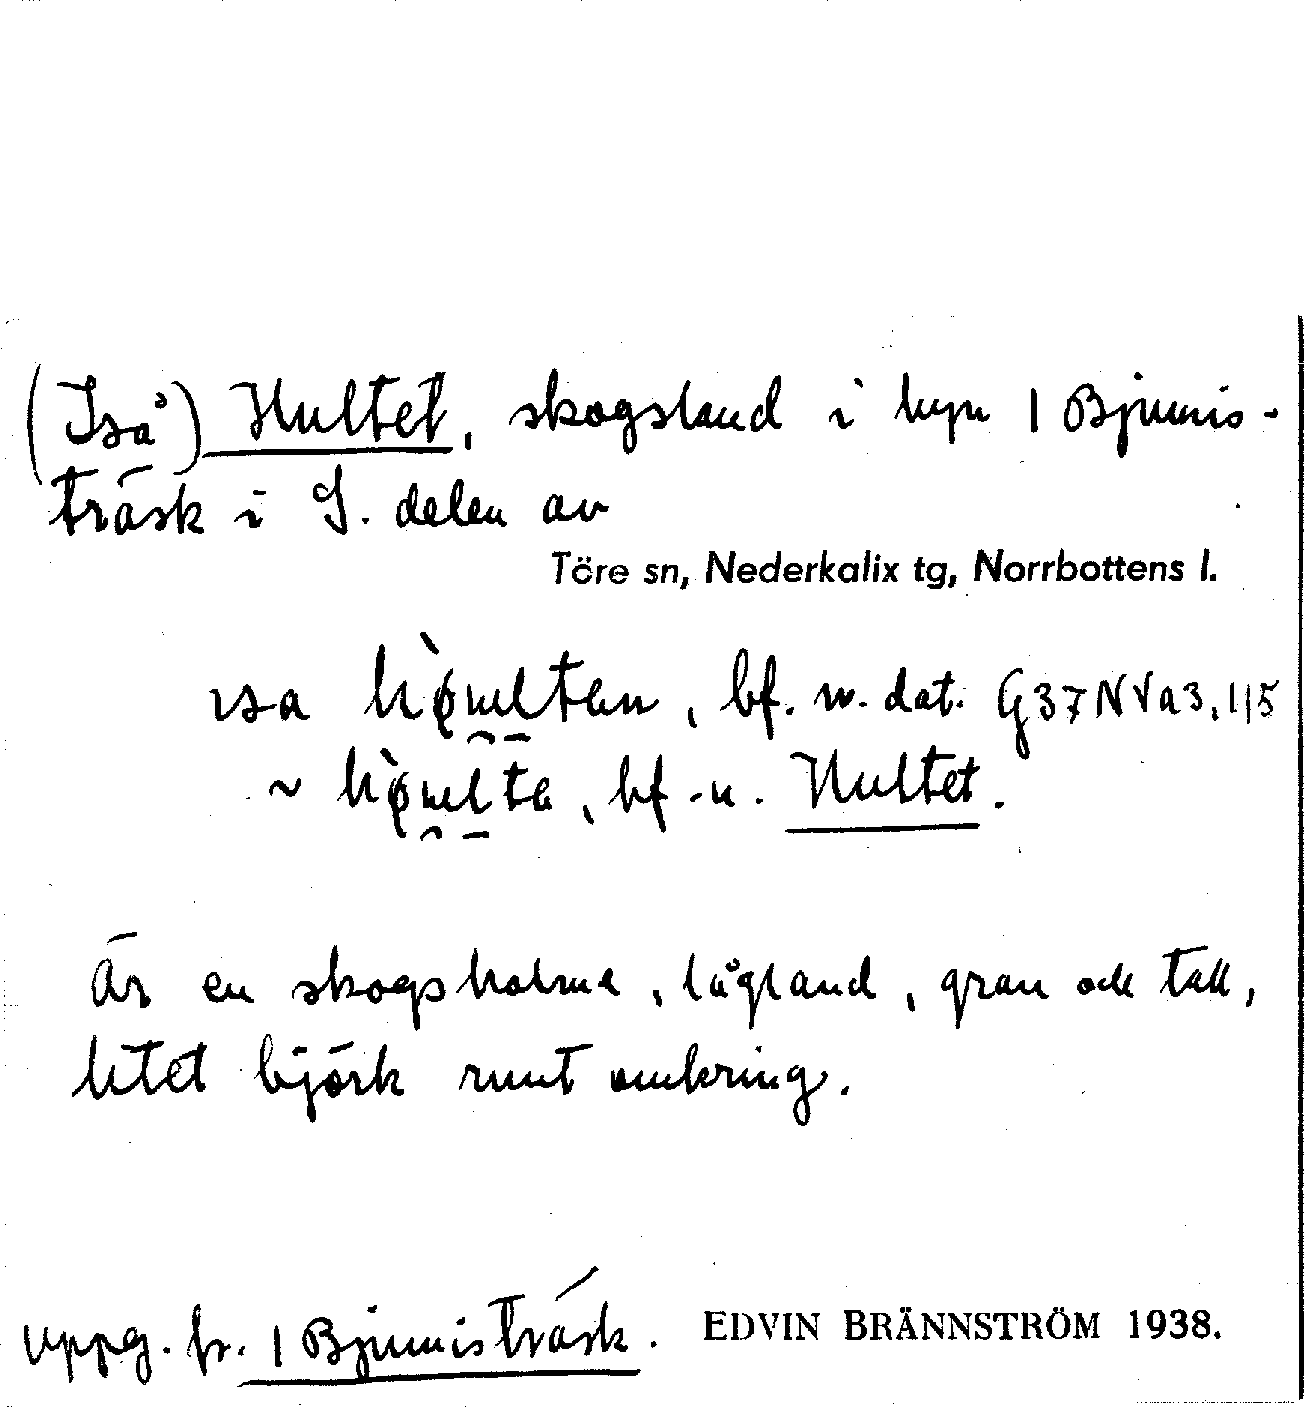 (Iså) Hultet, skogsland i byn 1 Bjumis-
träsk i S. delen av
Töre sn, Nederkalix tg, Norrbottens l.
bf. m. dat. G37NVa3, 1/5
~ bf. -n. Hultet.
Är en skogsholme, lågland, gran och tall,
litet björk runt omkring.
Uppg. fr. 1 Bjumisträsk. EDVIN BRÄNNSTRÖM 1938.